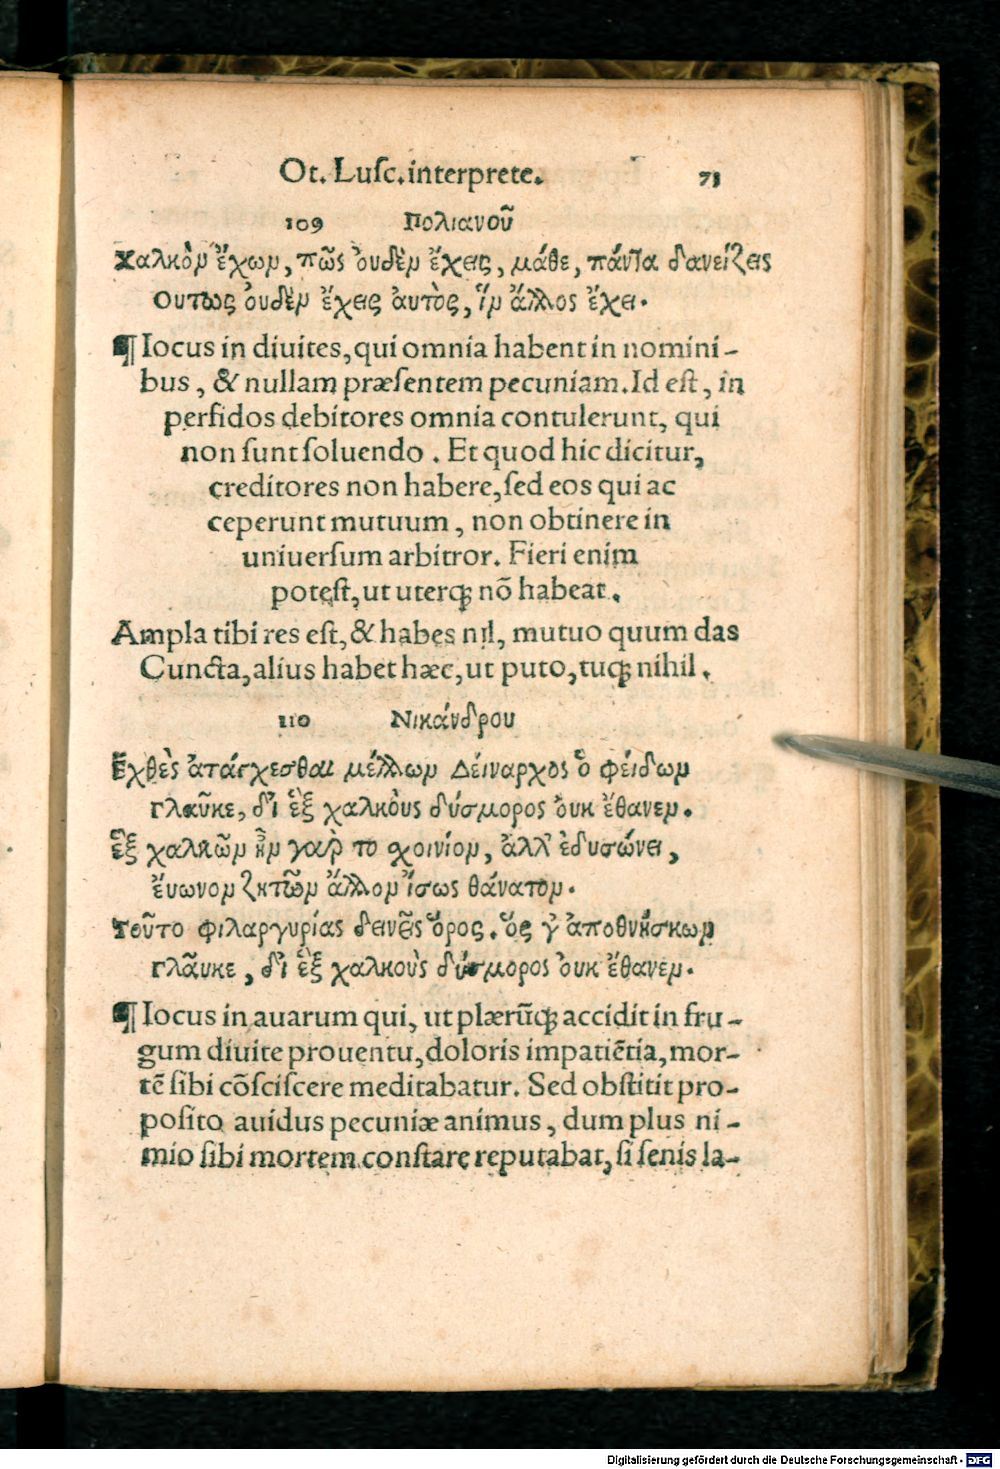 Ot. Luſc. interprete. 73
109 Πολιανοῦ
Χαλκὸν ἔχων, πῶς ὀυδὲν ἔχεις, μάθε, πάντα δανείζεις
Ουτως ὀυδὲν ἔχεις ἀυτὸς, ἵν ἄλλος ἔχει.
¶ Iocus in diuites, qui omnia habent in nomini-
bus, & nullam præſentem pecuniam. Id eſt, in
perfidos debitores omnia contulerunt, qui
non ſunt ſoluendo. Et quod hic dicitur,
creditores non habere, ſed eos qui ac
ceperunt mutuum, non obtinere in
uniuerſum arbitror. Fieri enim
poteſt, ut uterq; nõ habeat.
Ampla tibi res eſt, & habes nil, mutuo quum das
Cuncta, alius habet hæc, ut puto, tuq; nihil.
110 Νικάνδρου
Ἐχθὲς ἀπάγχεσθαι μέλλων Δέιναρχος ὁ φέιδων
Γλαῦκε, δι ἓξ χαλκὸυς δύσμορος ὀυκ ἔθανεν.
Ἓξ χαλκῶν ἦν γαὺρ το σχοινίον, ἀλλ᾽ ἐδυσώνει,
ἔυωνον ζητῶν ἄλλον ἴσως θάνατον.
Τοῦτο φιλαργυρίας δεινῆς ὅρος. ὅς γ᾽ ἀποθνήσκων
Γλᾶυκε, δι ἓξ χαλκοὺς δύσμορος ὀυκ ἔθανεν.
¶ Iocus in auarum qui, ut plærũq; accidit in fru-
gum diuite prouentu, doloris impatiẽtia, mor-
tẽ ſibi cõſciſcere meditabatur. Sed obſtitit pro-
poſito auidus pecuniæ animus, dum plus ni-
mio ſibi mortem conſtare reputabat, ſi ſenis la-
Digitalisierung gefördert durch die Deutsche Forschungsgemeinschaft - DFG